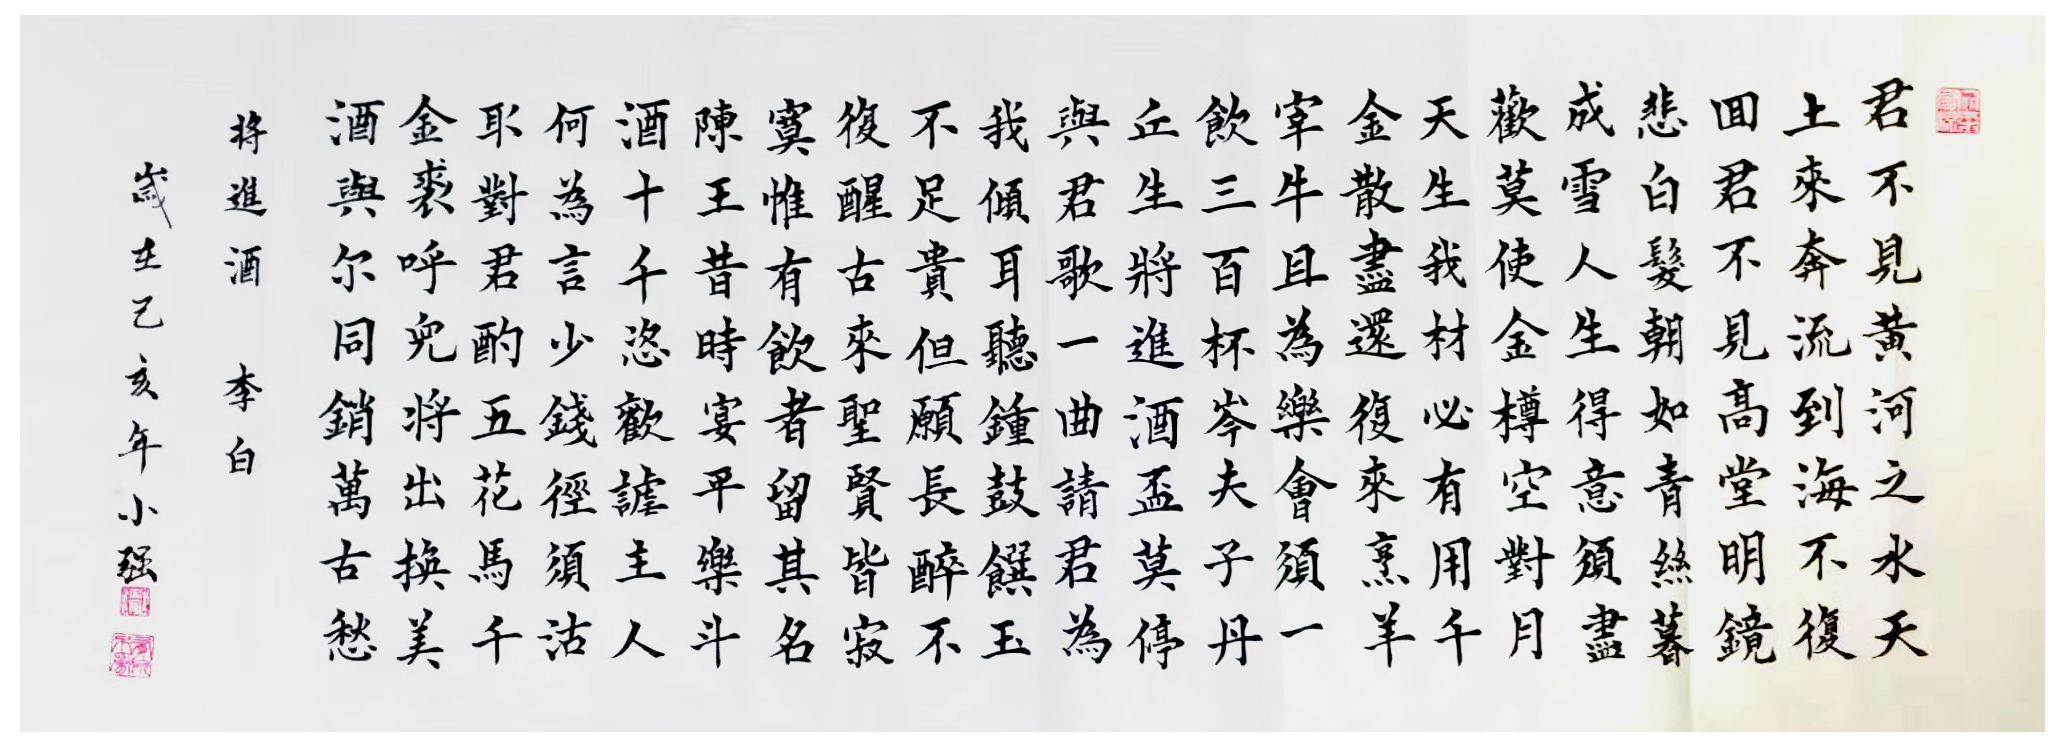 君不見黃河之水天
上來奔流到海不復
回君不見高堂明鏡
悲白髮朝如青絲暮
成雪人生得意須盡
歡莫使金樽空對月
天生我材必有用千
金散盡還復來烹羊
宰牛且為樂會須一
飲三百杯岑夫子丹
丘生將進酒盃莫停
與君歌一曲請君為
我傾耳聽鍾鼓饌玉
不足貴但願長醉不
復醒古來聖賢皆寂
寞惟有飲者留其名
陳王昔時宴平樂斗
酒十千恣歡謔主人
何為言少錢徑須沽
取對君酌五花馬千
金裘呼兒将出換美
酒與尔同銷萬古愁
将進酒 李白
歲在己亥年小強